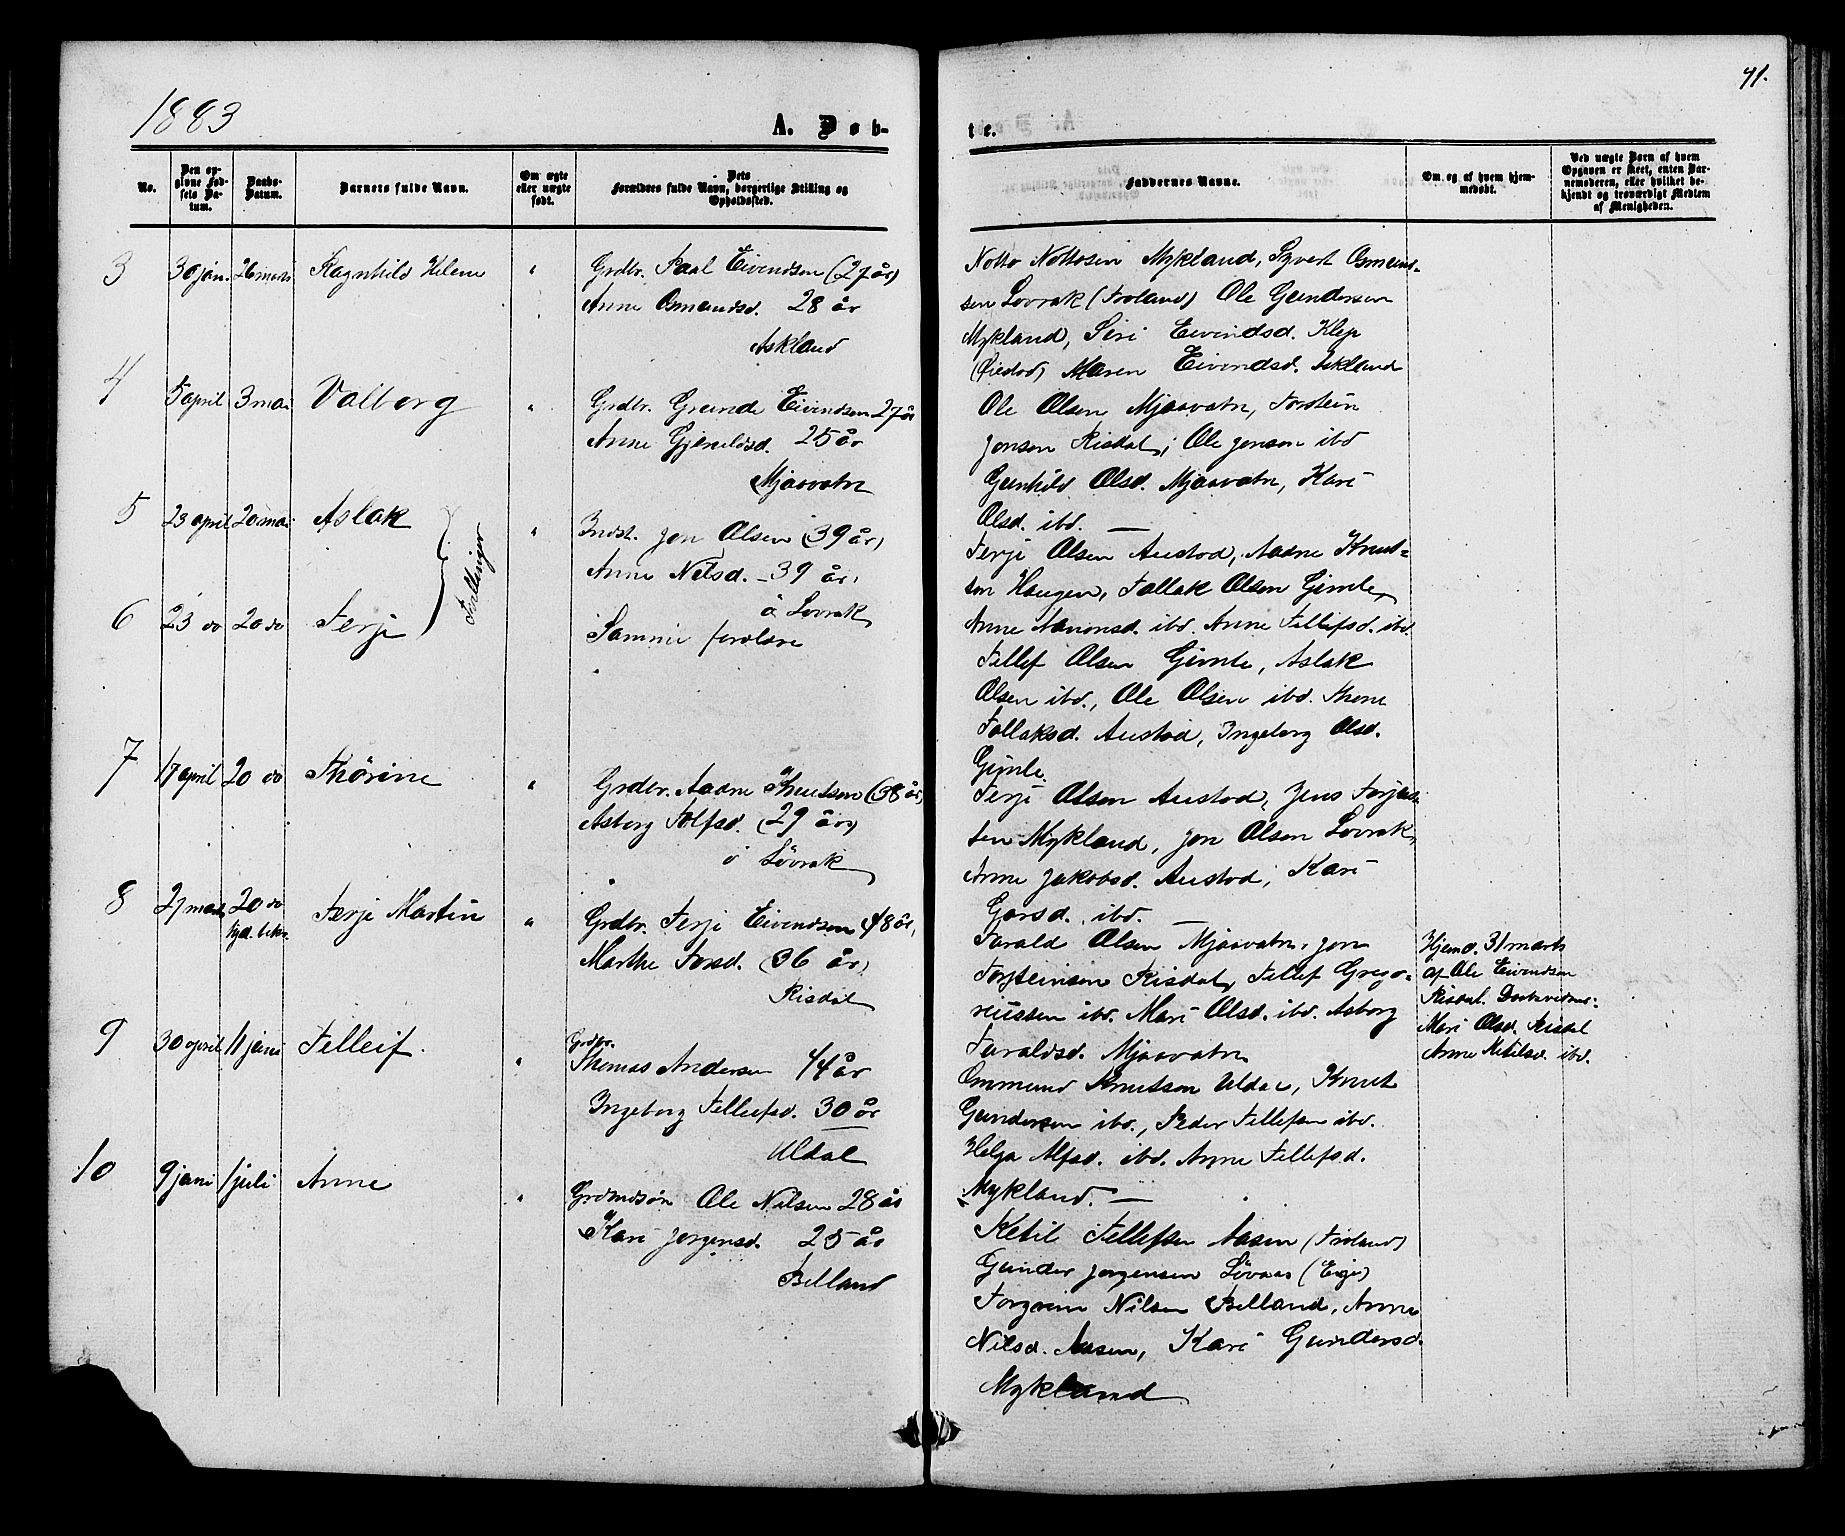 1883
A. Døb-
te.
41.
No.
Den op-
givne Fød-
sels Da-
tum.
Daabs-
Datum.
Barnets fulde Navn.
Om ægte
eller uægte
født.
Dets
Forældres fulde Navn, borgerlige Stilling og
Opholdssted.
Faddernes Navne.
Om og af hvem hjem-
medøbt.
Ved uægte Børn af hvem
Opgaven er skeet, enten Bar-
nemoderen, eller hvilket be-
kjendt og troværdigt Medlem
af Menigheden.
3 30 jan. 26 marts Ragnhild Helene " Grdbr. Paal Eivendsen (27 år)
Anne Osmundsd. 28 år
Askland
Notto Nottosen Mykland, Syvert Osmund-
sen Lovrak (Froland) Ole Gundersen
Mykland, Siri Eivindsd. Klep
(Øiestad) Maren Eivendsd. Askland
4 5 april 3 mai Valborg " Grdbr. Grunde Eivendsen 27 år
Anne Gjeruldsd. 25 år
Mjaavatn
Ole Olsen Mjaavatn, Torstein
Jonsen Risdal, Ole Jonsen ibd
Gunhild Olsd. Mjaavatn, Kari
Olsd. ibd. —
5 23 april 20 mai Aslak " Indst. Jon Olsen (39 år)
Tvillinger
Anne Nelsd. - 39 år,
å Lovrak
Terje Olsen Austad, Aadne Knut-
son Haugen, Tallak Olsen Gimle,
Anne Aanonsd. ibd. Anne Tellefsd. ibd.
6 23 do 20 do Terje
Samme forældre
Tellef Olsen Gimle, Aslak
Olsen ibd., Ole Olsen ibd. Thone
Tallaksd. Austad, Ingeborg Olsd.
Gimle.
7 17 april 20 do Thorine " Grdbr. Aadne Knutson (38 år)
Asborg Tolfsd. (29 år)
å Lövrak
Terje Olsen Austad, Jens Terjes-
sen Mykland, Jon Olsen Lovrak,
Anne Jakobsd. Austad, Kari
Garsd. ibd. —
8 27 marts 20 do Terje Martin " Grdbr. Terje Eivendsen 48 år,
Marthe Torsd. (36 år)
Risdal
Tarald Olsen Mjaavatn, Jon
Torsteinsen Risdal, Tellef Grego-
riussen ibd. Mari Olsd. ibd. Asborg
Taraldsd. Mjaavatn
Hjemd. 31 marts
af Ole Eivendsen
Risdal. Daabsvidner:
Mari Olsd. Risdal
Anne Ketilsd. ibd.
9 30 april 11 juni Telleif. " Grdbr.
Thomas Andersen 44 år
Ingeborg Telleifsd. 30 år
Uldal
Ommund Knutson Uldal, Knut
Gundersen ibd., Peder Tellefsen ibd.
Helga Alfsd. ibd. Anne Tellefsd.
Mykland. —
10 9 juni 1 juli Anne " Grdmdsøn Ole Nilsen 28 år
Kari Jorgensd. 25 år
Belland
Ketil Tellefsen Aasen (Froland)
Gunder Jorgensen Lövaas (Eige)
Torgrim Nilsen Belland, Anne
Nilsd. Aasen, Kari Gundersd.
Mykland